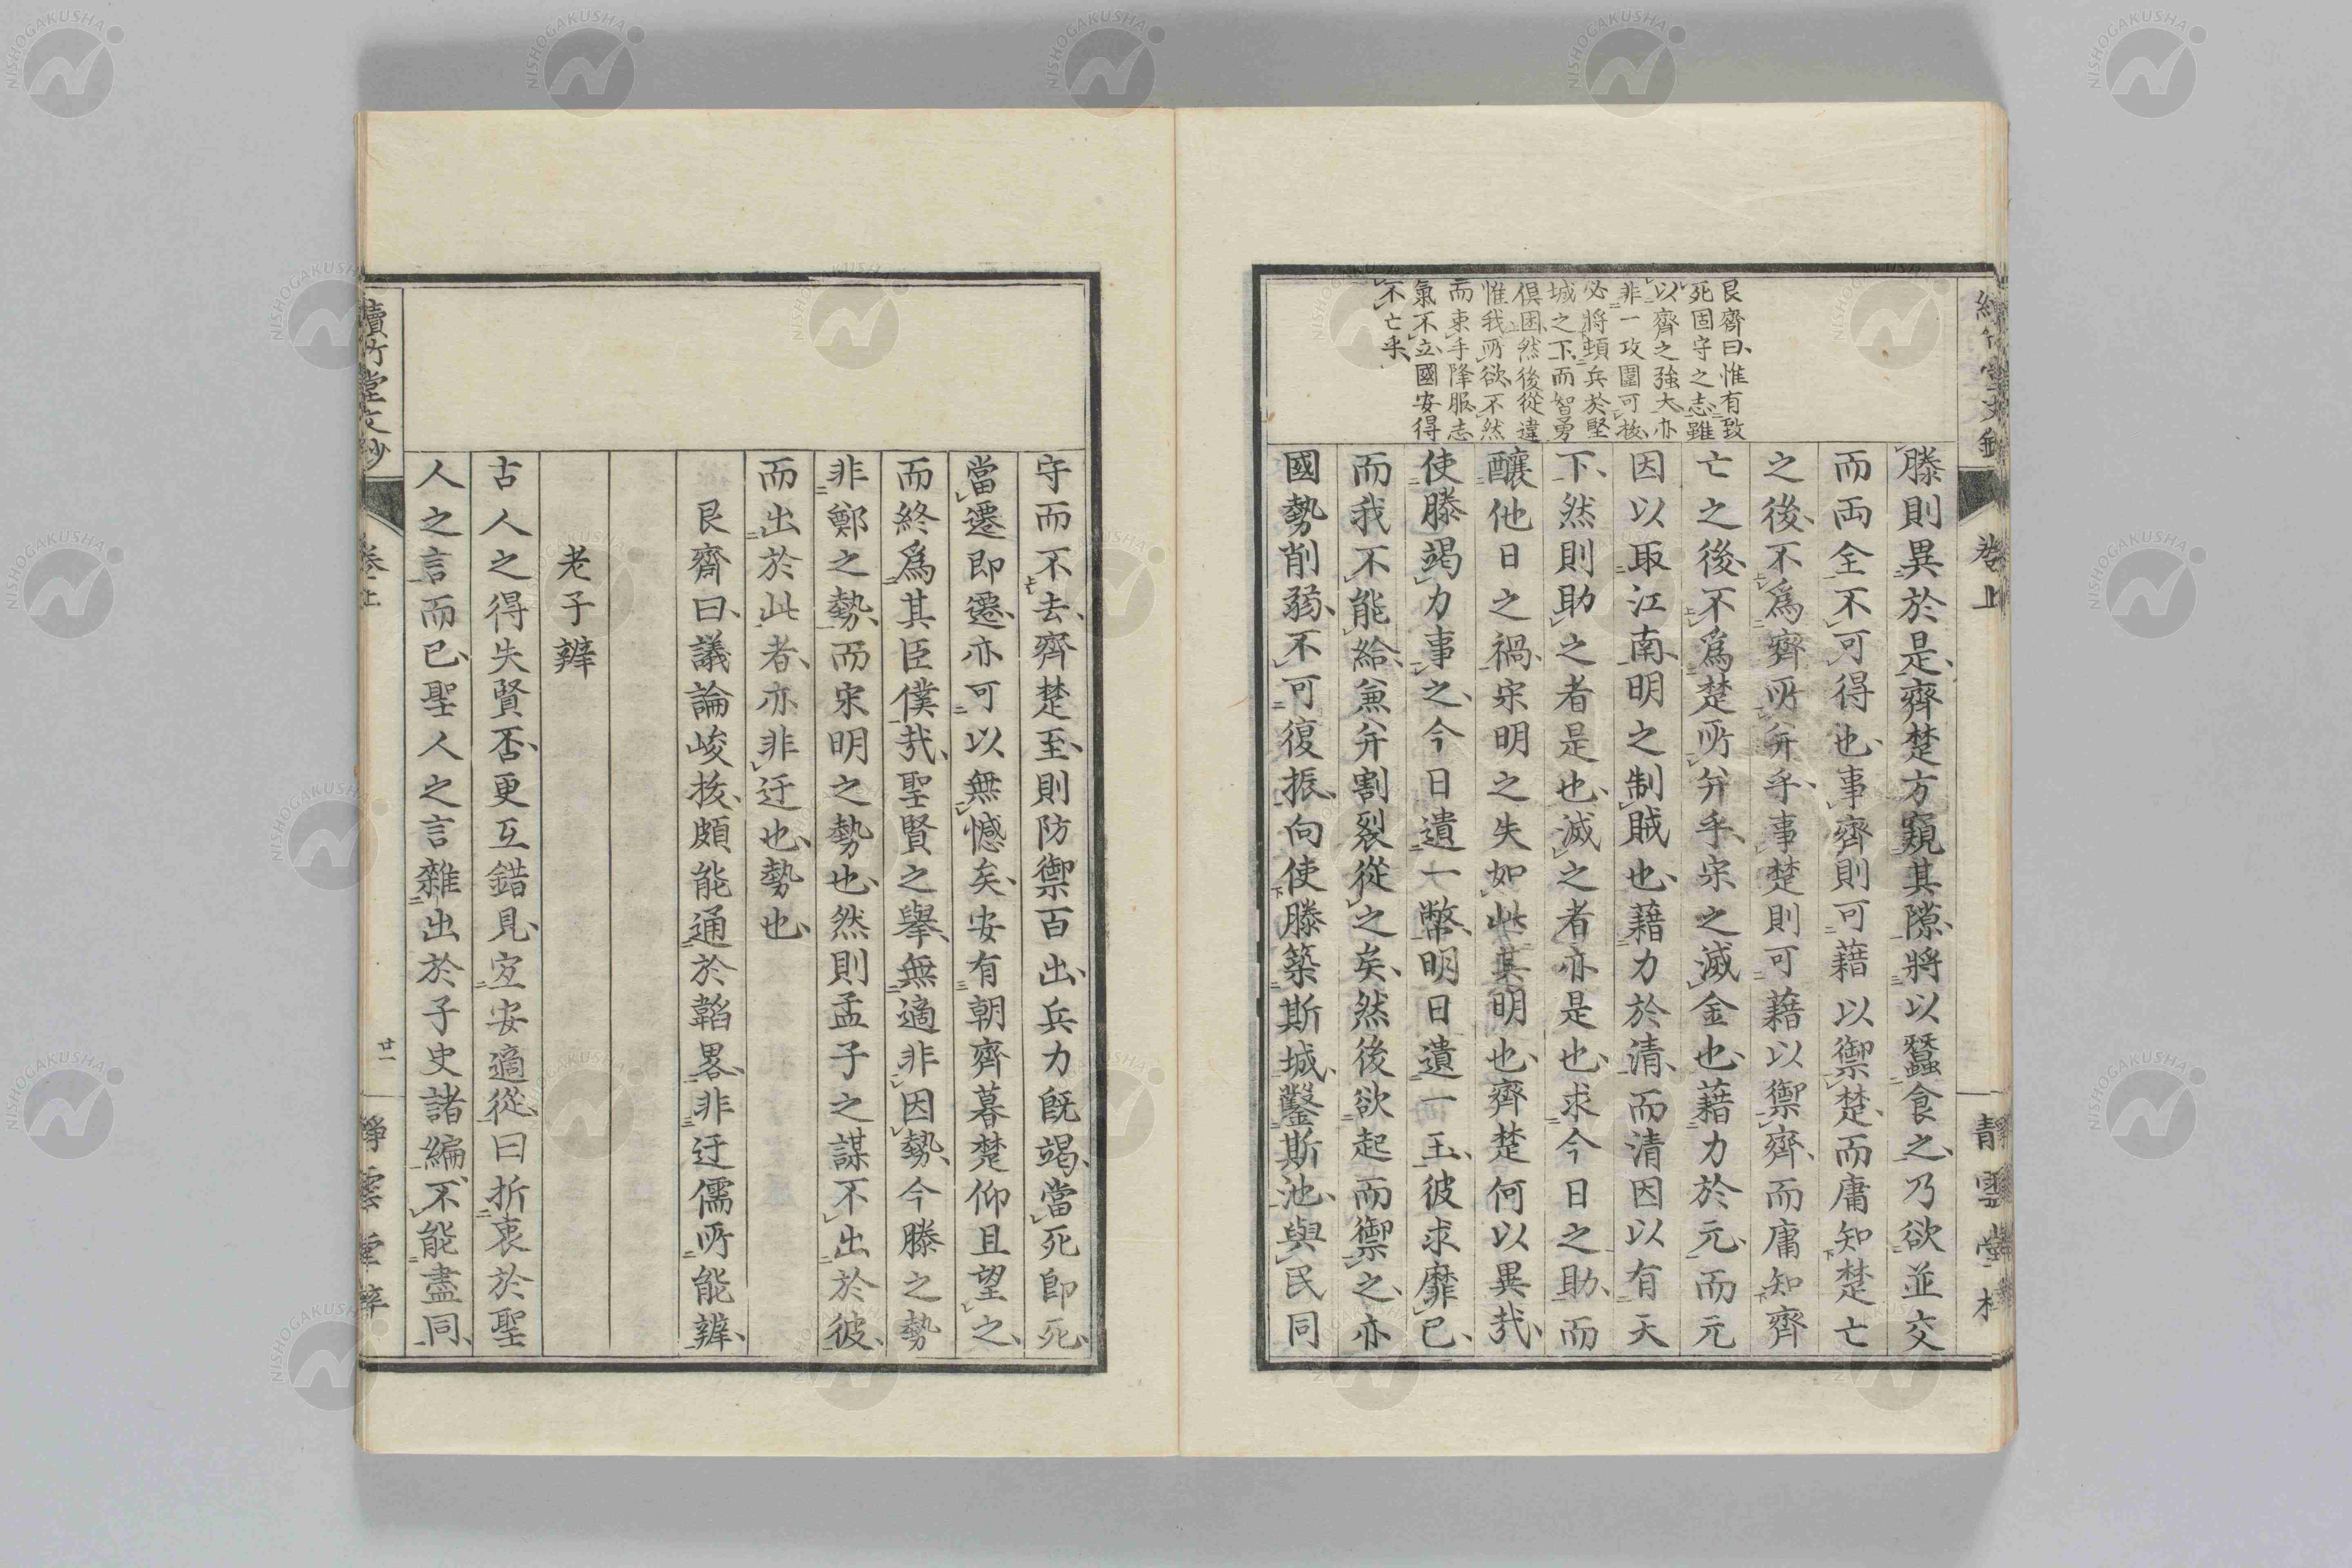 滕則異於是、齊楚方窺其隙、將以蠶食之、乃欲並交
而両全不可得也、事齊則可藉以禦楚、而庸知楚亡
之後、不爲齊所弁乎、事楚則可藉以禦齊、而庸知齊
亡之後、不爲楚所弁乎、宋之滅金也、藉力於元、而元
因以取江南、明之制賊也、藉力於清、而清因以有天
下、然則助之者是也、滅之者亦是也、求今日之助、而
釀他日之禍、宋明之失如此其明也、齊楚何以異哉、
使滕竭力事之、今日遺一幣、明日遺一玉、彼求靡已、
而我不能給、兼弁割裂從之矣、然後欲起而禦之、亦
國勢削弱、不可復振、向使滕築斯城、鑿斯池、與民同
艮齋曰、惟有致
死固守之志、雖
以齊之強大、亦
非一攻圍可拔、
必將頓兵於堅
城之下、而智勇
俱困、然後從違
惟我所欲、不然
而束手降服、志
氣不立、國安得
不亡乎、
守而不去、齊楚至、則防禦百出、兵力既竭、當死即死、
當遷即遷、亦可以無憾矣、安有朝齊暮楚仰且望之、
而終爲其臣僕哉、聖賢之舉、無適非因勢、今滕之勢
非鄭之勢、而宋明之勢也、然則孟子之謀不出於彼、
而出於此者、亦非迂也、勢也、
艮齋曰、議論峻拔、頗能通於韜畧、非迂儒所能辨、
老子辨
古人之得失賢否、更互錯見、宜安適從、曰折衷於聖
人之言而已、聖人之言雜出於子史諸編、不能盡同、
卷上
廿一